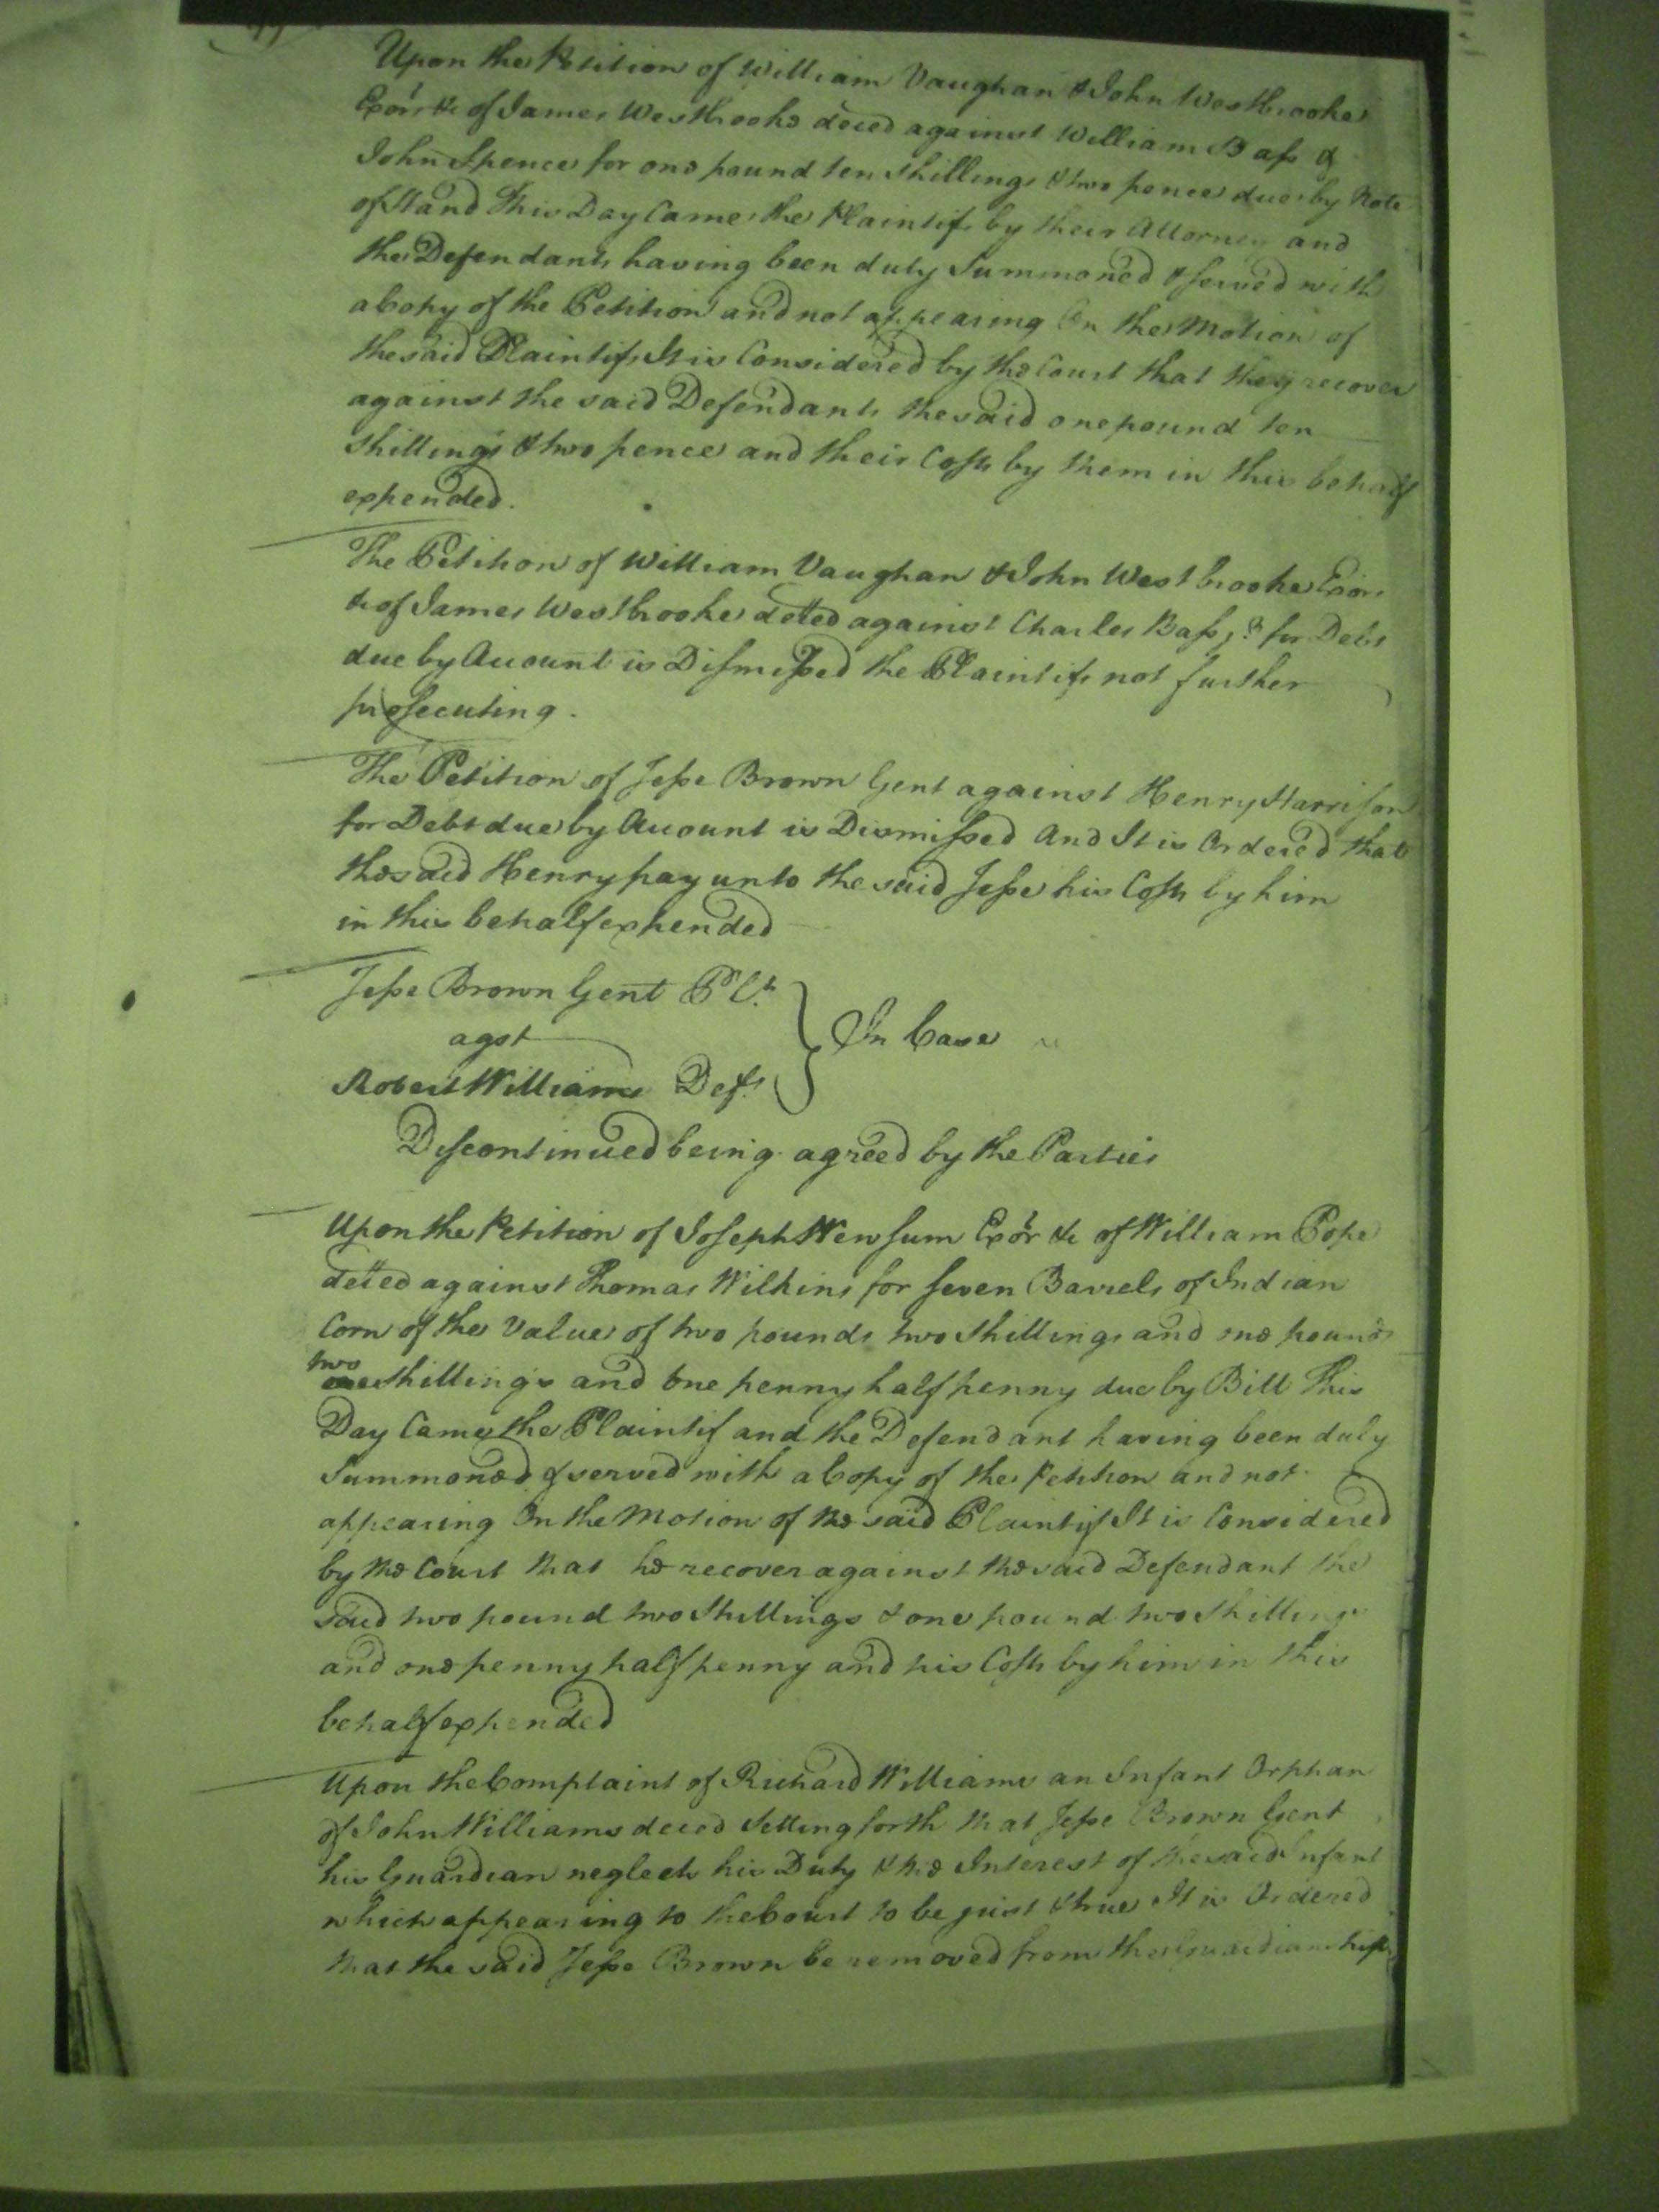 Upon the Petition of William Vaughan & John Westbrooke
Exors &c of James Westbrooke deced against William Bass &
John Spence for one pound ten shillings & two pence due by Note
of Hand This Day Came the Plaintifs by their Attorney and
the Defendants having been duly Summoned & served with
a Copy of the Petition and not appearing On the Motion of
the said Plaintifs It is Considered by the Court that they recover
against the said Defendants the said one pound ten
shillings & two pence and their Costs by them in this behalf
expended.
The Petition of William Vaughan & John Westbrooke Exors
&c of James Westbrooke deced against Charles Bass jr for Debt
due by Account is Dismissed the Plaintifs not further
prosecuting.
The Petition of Jesse Brown Gent against Henry Harrison
for Debt due by Account is Dismissed And It is Ordered that
the said Henry pay unto the said Jesse his Costs by him
in this behalf expended
Jesse Brown Gent
agst
In Case
Robert Williams Deft
Discontinued being agreed by the Parties
Upon the Petition of Joseph Newsum Exor &c of William Pope
deced against Thomas Wilkins for seven Barrels of Indian
Corn of the Value of two pounds two shillings and one pound
two shillings and one penny half penny due by Bill This
Day Came the Plaintif and the Defendant having been duly
Summoned & served with a Copy of the Petition and not
appearing On the Motion of the said Plaintif It is Considered
by the Court that he recover against the said Defendant the
said two pound two shillings & one pound two shillings
and one penny half penny and his Costs by him in this
behalf expended
Upon the Complaint of Richard Williams an Infant Orphan
of John Williams deced Setting forth that Jesse Brown Gent
his Guardian neglects his Duty & the Interest of the said Infant
which appearing to the Court to be just & true It is Ordered
that the said Jesse Brown be removed from the Guardianship